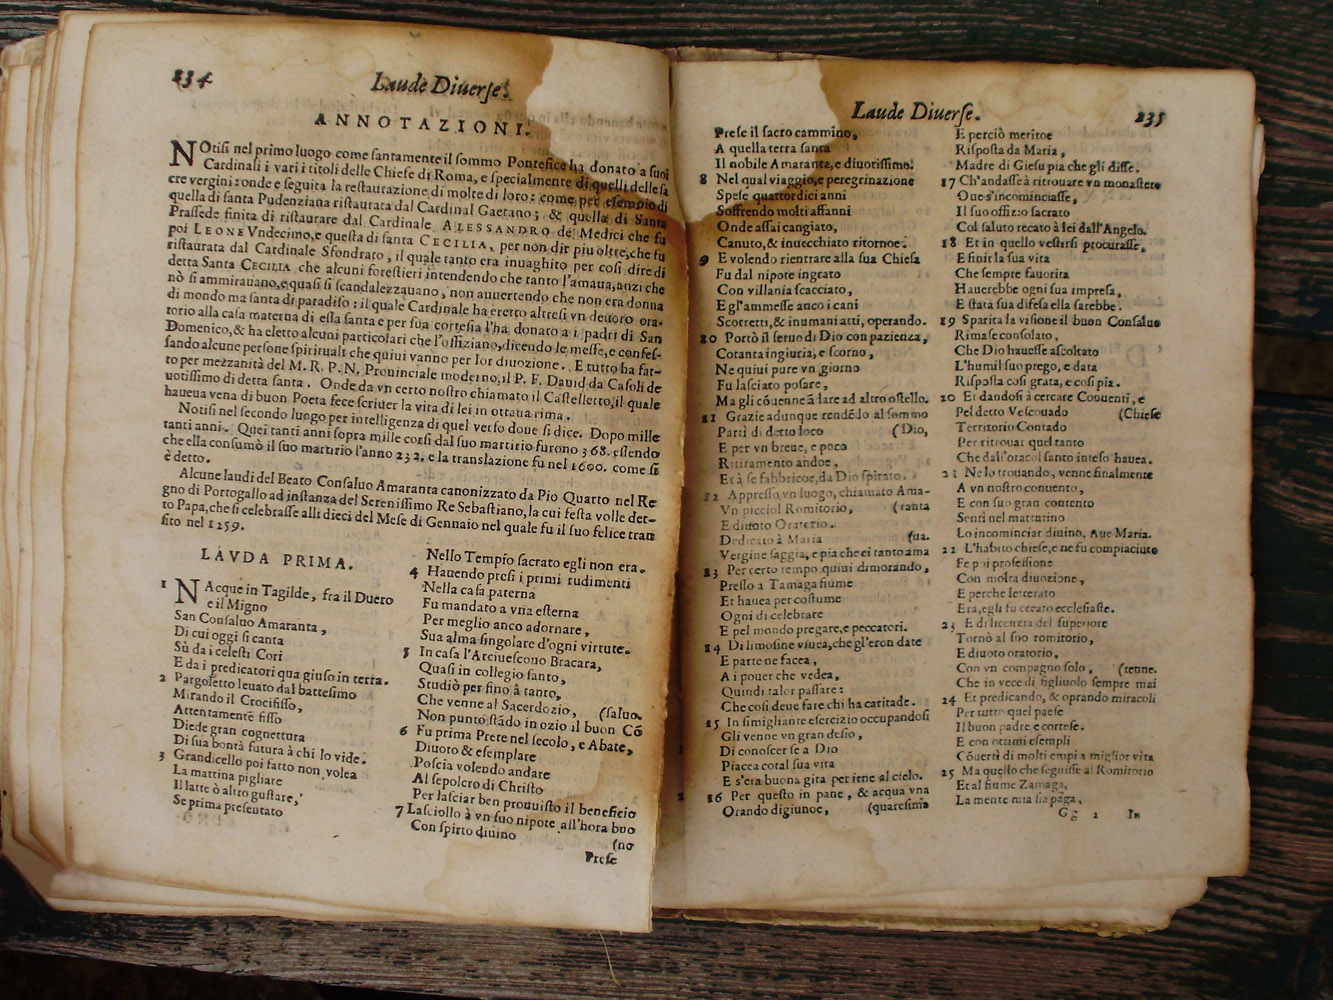 234
Laude Diuerse.
ANNOTAZIONI.
NOtisi nel primo luogo come santamente il sommo Pontefice ha donato a suoi
Cardinali i varii titoli delle Chiese di Roma, e specialmente di quelli delle sa
cre vergini: onde e seguita la restaurazione di molte di loro: come per esempio di
quella di santa Pudenziana ristaurata dal Cardinal Gaetano; & quella di Santa
Prassede finita di ristaurare dal Cardinale ALESSANDRO de' Medici che fu
poi LEONE Vndecimo, e questa di santa CECILIA, per non dir piu oltre, che fu
ristaurata dal Cardinale Sfondrato, il quale tanto era inuaghito per cosi dire di
detta Santa CECILIA che alcuni forestieri intendendo che tanto l'amaua, anzi che
nò si ammirauano, e quasi si scandalezzauano, non auuertendo che non era donna
di mondo ma santa di paradiso: il quale Cardinale ha eretto altresi vn deuoto ora-
torio alla casa materna di essa santa e per sua cortesia l'ha donato a i padri di San
Domenico, & ha eletto alcuni particolari che l'offiziano, dicendo le messe, e confes-
sando alcune persone spirituali che quiui vanno per lor diuozione. E tutto ha fat-
to per mezzanità del M. R. P. N. Prouinciale moderno, il P. F. Dauid da Casoli de
uotissimo di detta santa. Onde da vn certo nostro chiamato il Castelletto, il quale
haueua vena di buon Poeta fece scriuer la vita di lei in ottaua rima.
Notisi nel secondo luogo per intelligenza di quel verso doue si dice. Dopo mille
tanti anni. Quei tanti anni sopra mille corsi dal suo martirio furono 368. essendo
che ella consumò il suo martirio l'anno 232. e la translazione fu nel 1600. come si
è detto.
Alcune laudi del Beato Consaluo Amaranta canonizzato da Pio Quarto nel Re
gno di Portogallo ad instanza del Serenissimo Re Sebastiano, la cui festa volle det-
to Papa, che si celebrasse alli dieci del Mese di Gennaio nel quale fu il suo felice tran
sito nel 1259.
LAVDA PRIMA.
1 NAcque in Tagilde, fra il Duero
e il Migno
San Consaluo Amaranta,
Di cui oggi si canta
Sù da i celesti Cori
E da i predicatori qua giuso in terra.
2 Pargoletto leuato dal battesimo
Mirando il Crocifisso,
Attentamente fisso
Diede gran cognettura
Di sua bontà futura à chi lo vide.
3 Grandicello poi fatto non volea
La mattina pigliare
Il latte ò altro gustare,
Se prima presentato
Nello Tempio sacrato egli non era.
4 Hauendo presi i primi rudimenti
Nella casa paterna
Fu mandato a vna esterna
Per meglio anco adornare,
Sua alma singolare d'ogni virtute.
5 In casa l'Arciuescouo Bracara,
Quasi in collegio santo,
Studiò per fino à tanto,
Che venne al Sacerdozio, (saluo.
Non punto stādo in ozio il buon Cō
6 Fu prima Prete nel secolo, e Abate,
Diuoto & esemplare
Poscia volendo andare
Al sepolcro di Christo
Per lasciar ben prouuisto il beneficio
7 Lasciollo à vn suo nipote all'hora buo
Con spirto diuino (no
Prese
Laude Diuerse.
235
Prese il sacro cammino,
A quella terra santa
Il nobile Amaranta, e diuotissimo.
8 Nel qual viaggio, e peregrinazione
Spese quattordici anni
Soffrendo molti affanni
Onde assai cangiato,
Canuto, & inuecchiato ritornoe.
9 E volendo rientrare alla sua Chiesa
Fu dal nipote ingrato
Con villania scacciato,
E gl'ammesse anco i cani
Scorretti, & inumani atti, operando.
10 Portò il seruo di Dio con pazienza,
Cotanta ingiuria, e scorno,
Ne quiui pure vn giorno
Fu lasciato posare,
Ma gli cōuenne ā lare ad altro ostello.
11 Grazie adunque rendēdo al sommo
Partì di detto loco (Dio,
E per vn breue, e poco
Ritiramento andoe,
Et à se fabbricoe, da Dio spirato.
12 Appresso, vn luogo, chiamato Ama-
Vn picciol Romitorio, (ranta
E diuoto Oratorio.
Dedicato à Maria (ua.
Vergine saggia, e pia che ei tanto ama
13 Per certo tempo quiui dimorando,
Presso a Tamaga fiume
Et hauea per costume
Ogni di celebrare
E pel mondo pregare, e peccatori.
14 Di limosine viuea, che gl'eron date
E parte ne facea,
A i pouer che vedea,
Quindi talor passare:
Che cosi deue fare chi ha caritade.
15 In simigliante esercizio occupandosi
Gli venne vn gran desio,
Di conoscer se a Dio
Piacea cotal sua vita
E s'era buona gita per irne al cielo.
16 Per questo in pane, & acqua vna
Orando digiunoe, (quaresima
E perciò meritoe
Risposta da Maria,
Madre di Giesu pia che gli disse.
17 Ch'andasse à ritrouare vn monastero
Oue s'incominciasse,
Il suo offizio sacrato
Col saluto recato à lei dall'Angelo.
18 Et in quello vestirsi procurasse,
E finir la sua vita
Che sempre fauorita
Hauerebbe ogni sua impresa,
E stata sua difesa ella sarebbe.
19 Sparita la visione il buon Consaluo
Rimase consolato,
Che Dio hauesse ascoltato
L'humil suo prego, e data
Risposta cosi grata, e cosi pia.
20 Et dandosi à cercare Conuenti, e
Pel detto Vescouado (Chiese
Territorio Contado
Per ritrouar quel tanto
Che dall'oracol santo inteso hauea.
21 Ne lo trouando, venne finalmente
A vn nostro conuento,
E con suo gran contento
Sentì nel mattutino
Lo incominciar diuino, Aue Maria.
22 L'habito chiese, e ne fu compiaciuto
Fe poi professione
Con molta diuozione,
E perche letterato
Era, egli fu creato ecclesiaste.
23 E di licenzia del superiore
Tornò al suo romitorio,
E diuoto oratorio,
Con vn compagno solo, (tenne.
Che in vece di figliuolo sempre mai
24 Et predicando, & oprando miracoli
Per tutto quel paese
Il buon padre e cortese.
E con ottimi esempli
Cōuertì di molti empi a miglior vita
25 Ma quello che seguisse al Romitorio
Et al fiume Zamaga,
La mente mia fia paga,
Gg 2 In